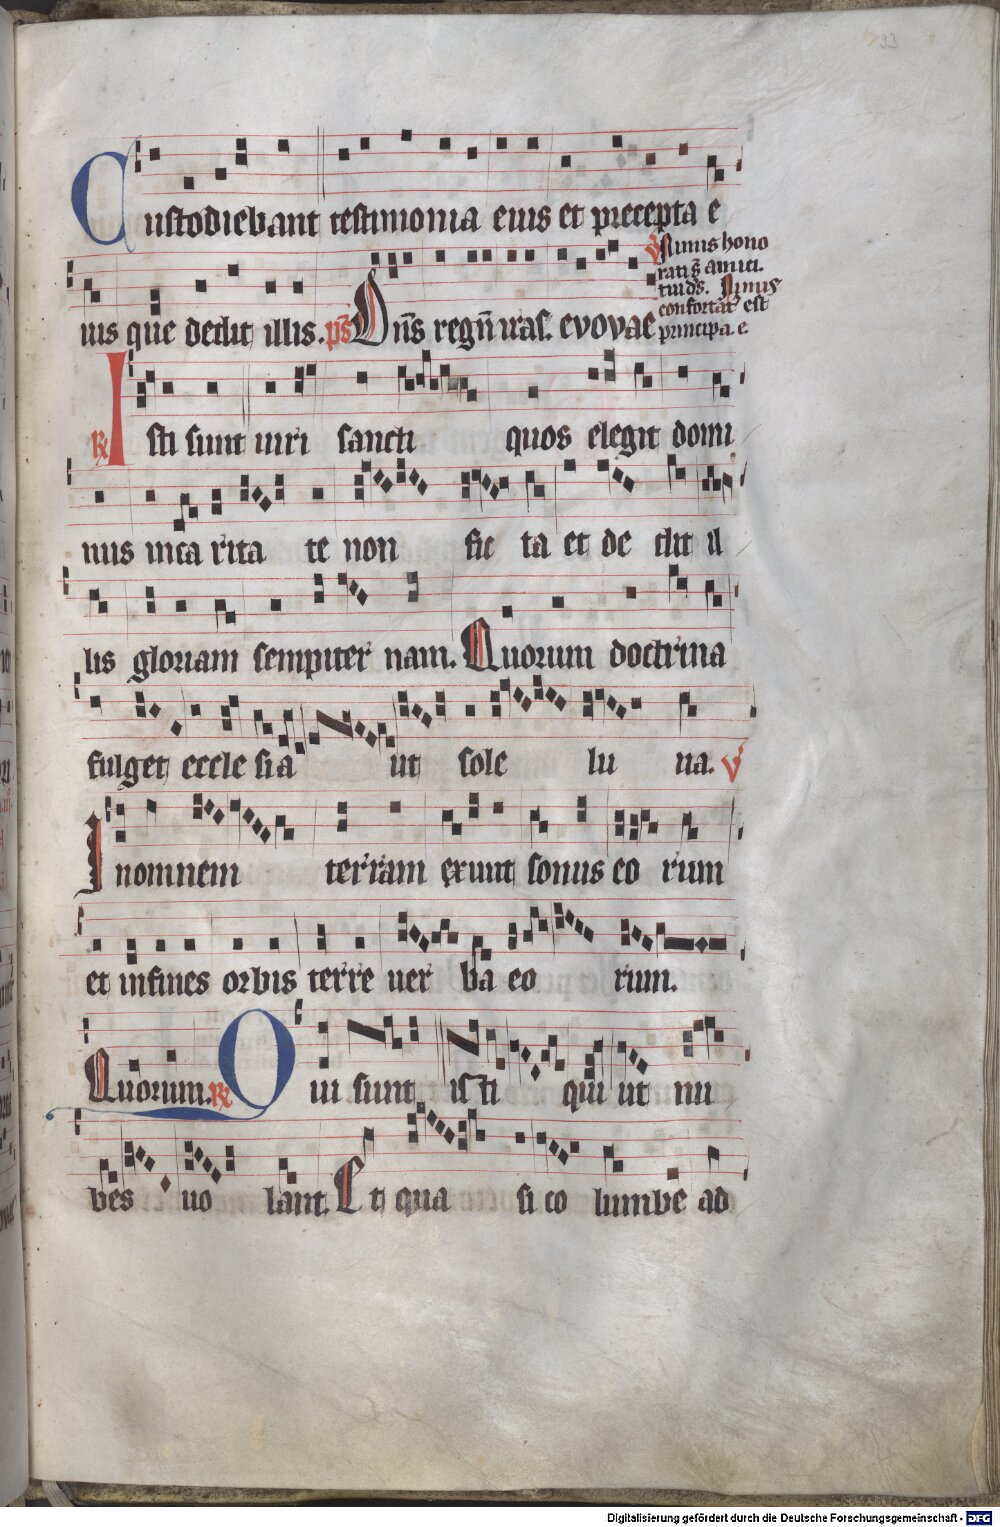 93
Custodiebant testimonia eius et precepta e
ius que dedit illis. ps Dns regn iras. evovae
V Nimis hono
rati s amici.
tui ds. Nimis
confortat est
principa. e.
R Isti sunt uiri sancti quos elegit domi
nus in ca rita te non fic ta et de dit il
lis gloriam sempiter nam. Quorum doctrina
fulget eccle sia ut sole lu na. V
In omnem terram exiuit sonus eo rum
et in fines orbis terre uer ba eo rum.
Quorum. R Qui sunt isti qui ut nu
bes uo lant. Et qua si co lumbe ad
Digitalisierung gefördert durch die Deutsche Forschungsgemeinschaft - DFG